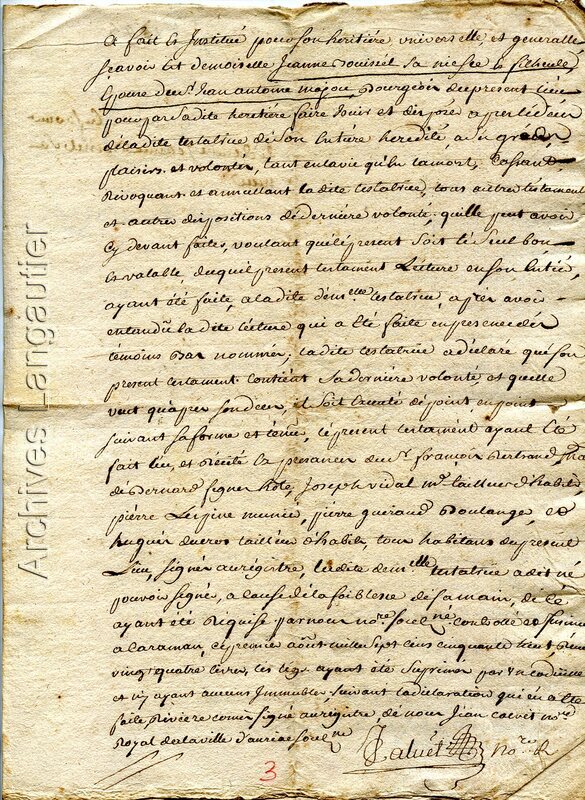 a fait et Institué pour son heritière universelle, et generalle
scavoir est demoiselle Jeanne Douiseil sa niesse & filheule
Epouse du sr. Jean antoine majou Bourgeois du present lieu
pour par sadite heretière faire Jouir et disposé apres le dain
de ladite testatrice de son entière heredité, a ses
plaisirs et volontés, tant en la vie qu'en la mort, Cassant
Revoquant et annullant ladite testatrice, tous autres testament
et autres dispositions de dernière volonté, qu'elle peut avoir
Cy devant faites, voulant que le present soit le seul bon
et valable duquel present testament Lecture en son entier,
ayant été faite, a ladite demlle testatrice, apres avoir
entendu ladite lecture qui a été faite en presence des
temoins Bas nommés; ladite testatrice a declaré que son
present testament contient sa dernière volonté et quelle
veut qu'apres son deces, il soit executé de point en point
suivant sa forme et teneur, le present testament ayant été
fait leu, et Récité En presance du sr françois Bertrand
de Bernard signer Joseph Vidal me tailleur d'habits
pierre Lespine pierre gueraud Boulanger, et
huguer ducros tailleur d'habits, tous habitans du present
Lieu, signés au régistre, ladite demlle testatrice a dit ne
pouvoir signé, a cause de la foiblesse de sa main, de ce
ayant été Requise par nous nore soulne Controllé et Insinué
a Caraman, le premier août mille sept cens cinquante huit, Reçu
vingt quatre livres, les legs ayant été suprimés par
et n'y ayant aucuns Immeubles, suivant la déclaration qui en a été
faite Rivière comis signé au régistre, de nous Jean Calvet nore
Royal de la ville d'auriac soulne
Calvét nore R
3
Archives Langautier